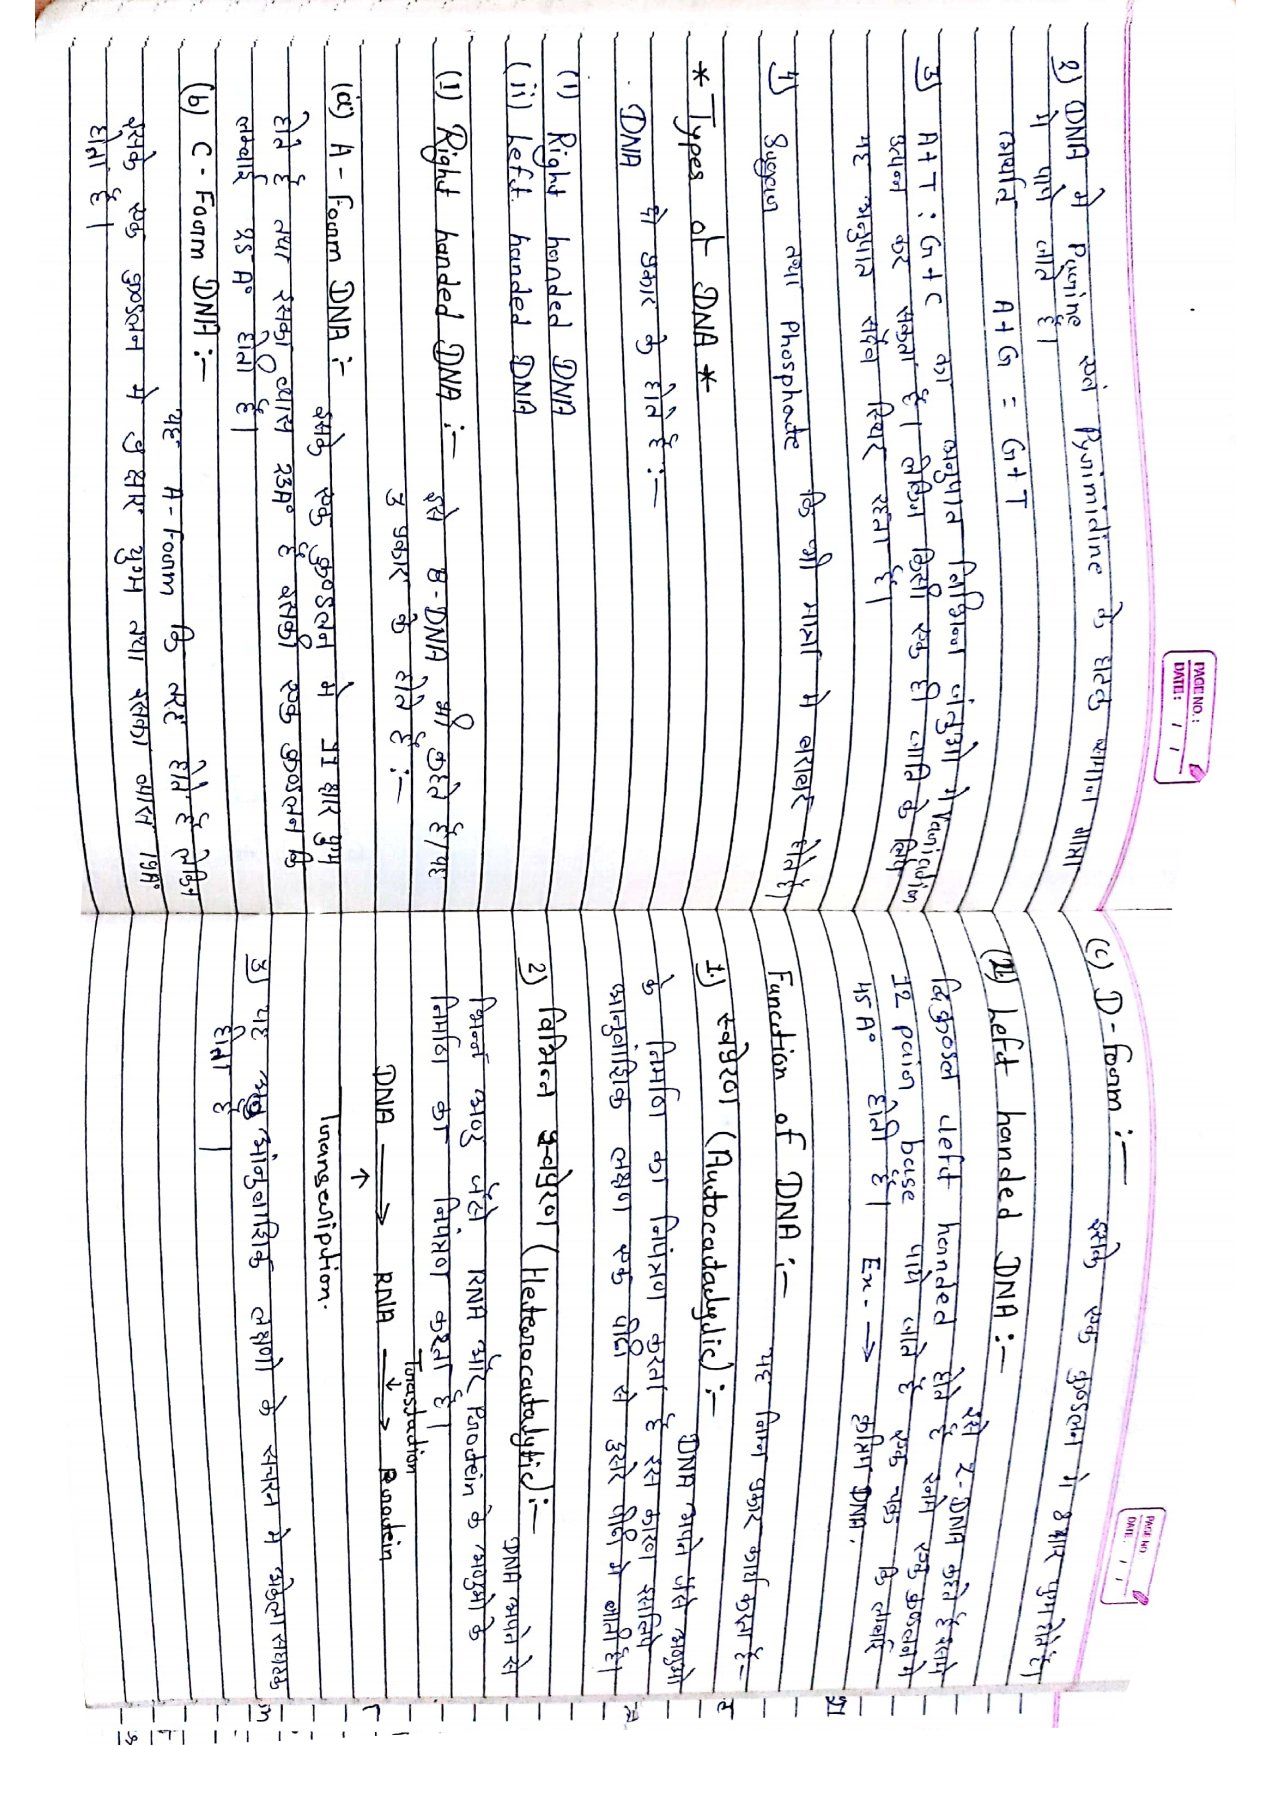 PAGE NO.:
DATE: / /
2) DNA मे Purine एवं Pyrimidine के घटक समान मात्रा
मे पाये जाते है।
अर्थात A+G = G+T
3) A+T : G+C का अनुपात विभिन्न जंतुओ मे Variation
उत्पन्न कर सकता है। लेकिन किसी एक ही जाति के लिए
यह अनुपात सदैव स्थिर रहता है।
4) Sugar तथा Phosphate कि भी मात्रा मे बराबर होते है।
* Types of DNA *
DNA दो प्रकार के होते है :—
(i) Right handed DNA
(ii) Left handed DNA
(1) Right handed DNA :—
इसे B-DNA भी कहते है। यह
3 प्रकार के होते है :—
(a) A - Form DNA :—
इसके एक कुण्डलन मे 11 क्षार युग्म
होते है तथा इसकी व्यास 23A° है इसकी एक कुण्डलन कि
लम्बाई 25A° होता है।
(b) C - Form DNA :—
यह A-Form कि तरह होते है लेकिन
इसके एक कुण्डलन मे 9 क्षार युग्म तथा इसका व्यास 19A°
होता है।
PAGE NO
DATE: / /
(c) D-form :—
इसके एक कुण्डलन मे 8 क्षार युग्म होते है।
(2) Left handed DNA :—
इसे Z-DNA कहते है इसमे
द्विकुण्डल left handed होते है इसमे एक कुण्डलन मे
12 pair base पाये जाते है एक चक्र कि लंबाई
45A° होती है। Ex- → कृत्रिम DNA.
Function of DNA :—
यह निम्न प्रकार कार्य करता है—
1.) स्वप्रेरण (Autocatadylic) :—
DNA अपने जैसे अणुओ
के निर्माण का नियंत्रण करता है इस कारण इसलिये
आनुवांशिक लक्षण एक पीढी से दुसरे पीढी मे जाती है।
2) विभिन्न प्रेरण (Heterocatalytic) :—
DNA अपने से
भिन्न अणु जैसे RNA और Protein के अणुओ के
निर्माण का नियंत्रण करता है।
Translation
DNA → RNA → Protein
↑
Transcription.
3) यह आनुवांशिक लक्षणो के संचरन मे
होता है।